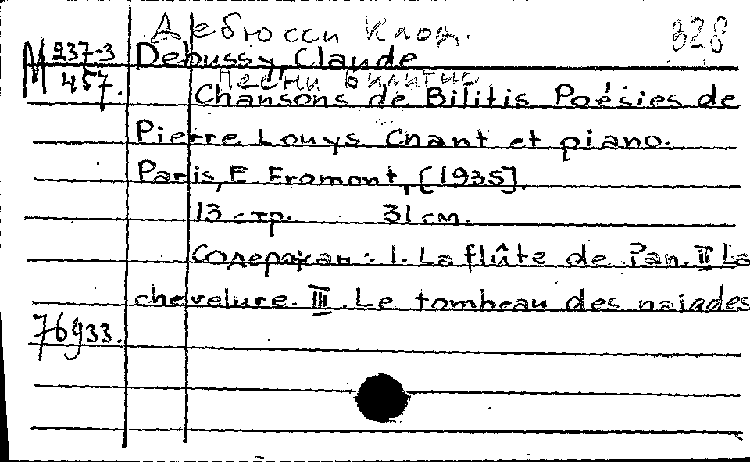 Дебюсси Клод. 328
М 237-3 Debussy, Claude
Песни Билитис
457. Chansons de Bilitis Poésies de
Pierre Louys Chant et piano.
Paris, E Fromont, [1935].
13 стр. 31 см.
Содержан: I. La flûte de Pan. II La
chevelure. III. Le tombeau des naiades
76933.